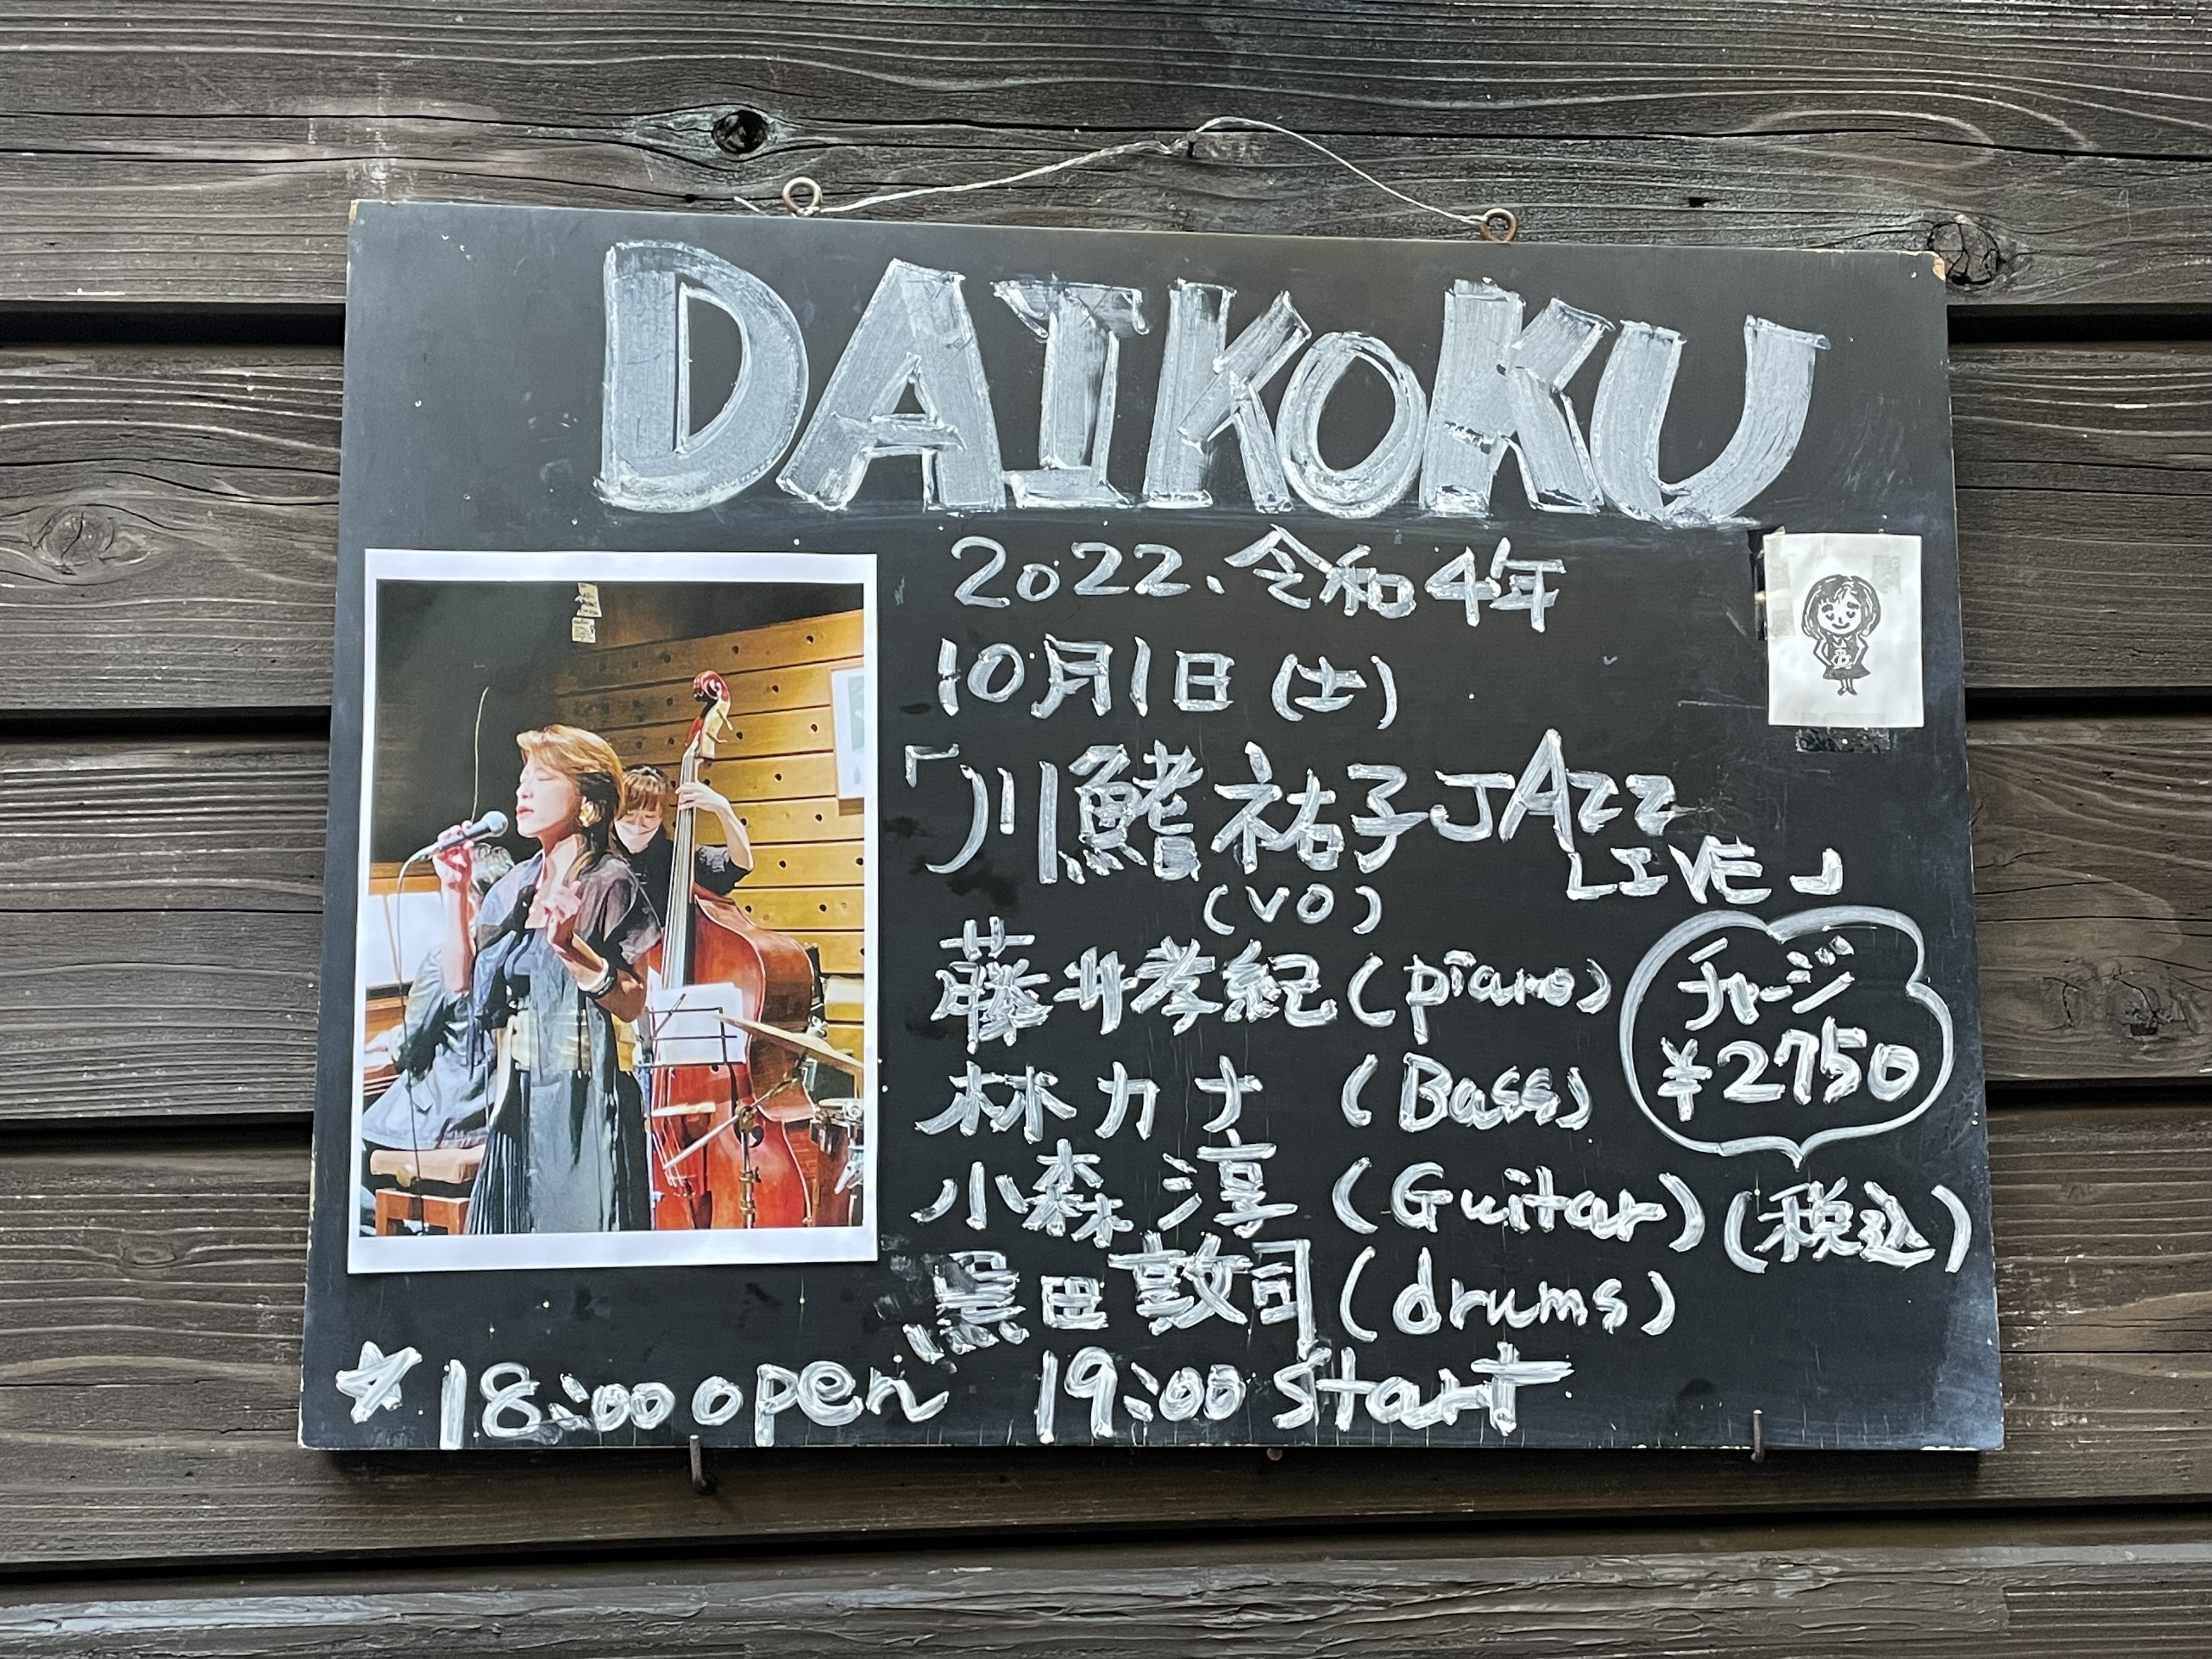 DAIKOKU
2022、令和4年
10月1日(土)
「川鰭祐子JAZZ
LIVE」
(VO)
藤井孝紀(piano)
チャージ
¥2750
林カナ(Bass)
小森淳(Guitar)(税込)
黒田敦司(drums)
☆18:00open 19:00start